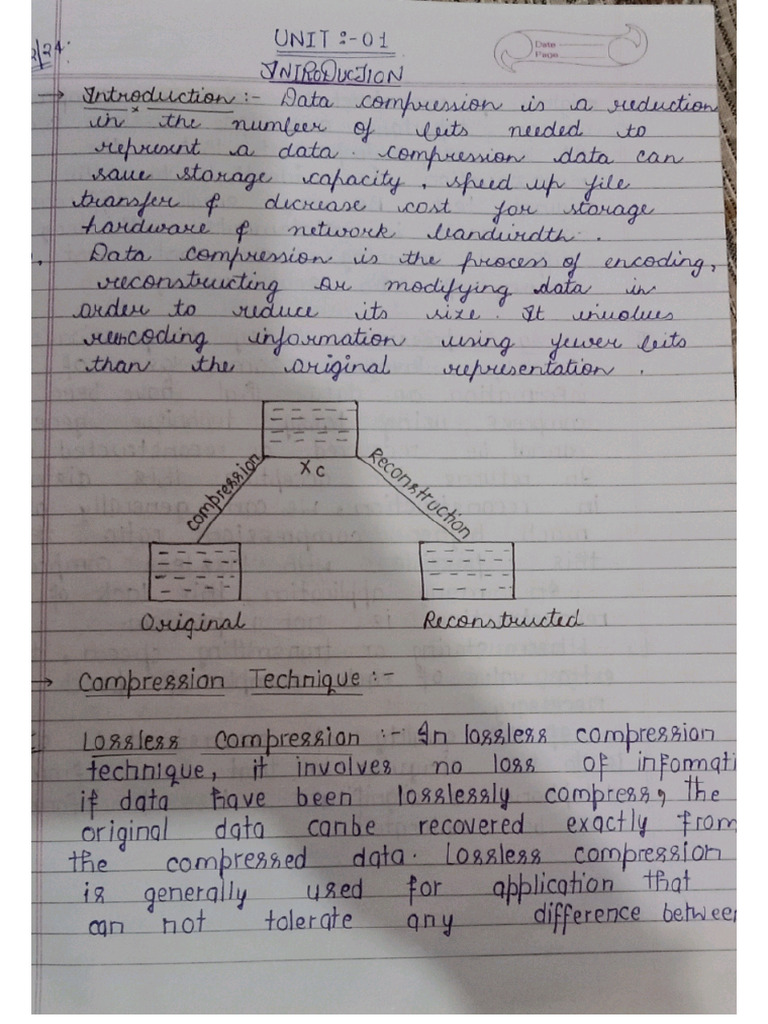 2/24.
UNIT :- 01
Date
Page
INTRODUCTION
→ Introduction :- Data compression is a reduction
in the number of bits needed to
represent a data. compression data can
save storage capacity, speed up file
transfer & decrease cost for storage
hardware & network bandwirdth.
Data compression is the process of encoding,
reconstructing or modifying data in
order to reduce its size. It involves
rencoding information using fewer bits
than the original representation.
Xc
compression
Reconstruction
Original
Reconstructed
→ Compression Technique :-
Lossless Compression :- In lossless compression
technique, it involves no loss of informati
if data have been losslessly compress, the
original data canbe recovered exactly from
the compressed data. Lossless compression
is generally used for application that
can not tolerate any difference between